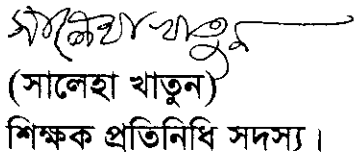 সালেহা খাতুন
(সালেহা খাতুন)
শিক্ষক প্রতিনিধি সদস্য।